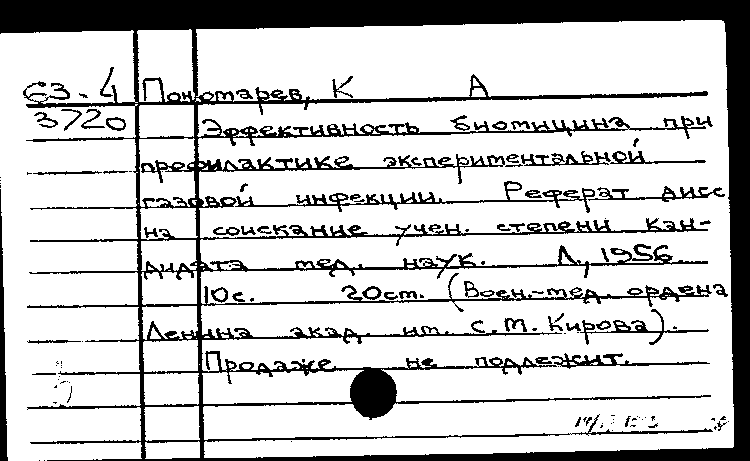 63-4 Пономарев, К А
3720 Эффективность биомицина при
профилактике экспериментальной
газовой инфекции. Реферат дисс
на соискание учен. степени кан-
дидата мед. наук. Л., 1956
10с. 20см. (Воен.-мед. ордена
Ленина акад. им. С.М.Кирова).
Продаже не подлежит.